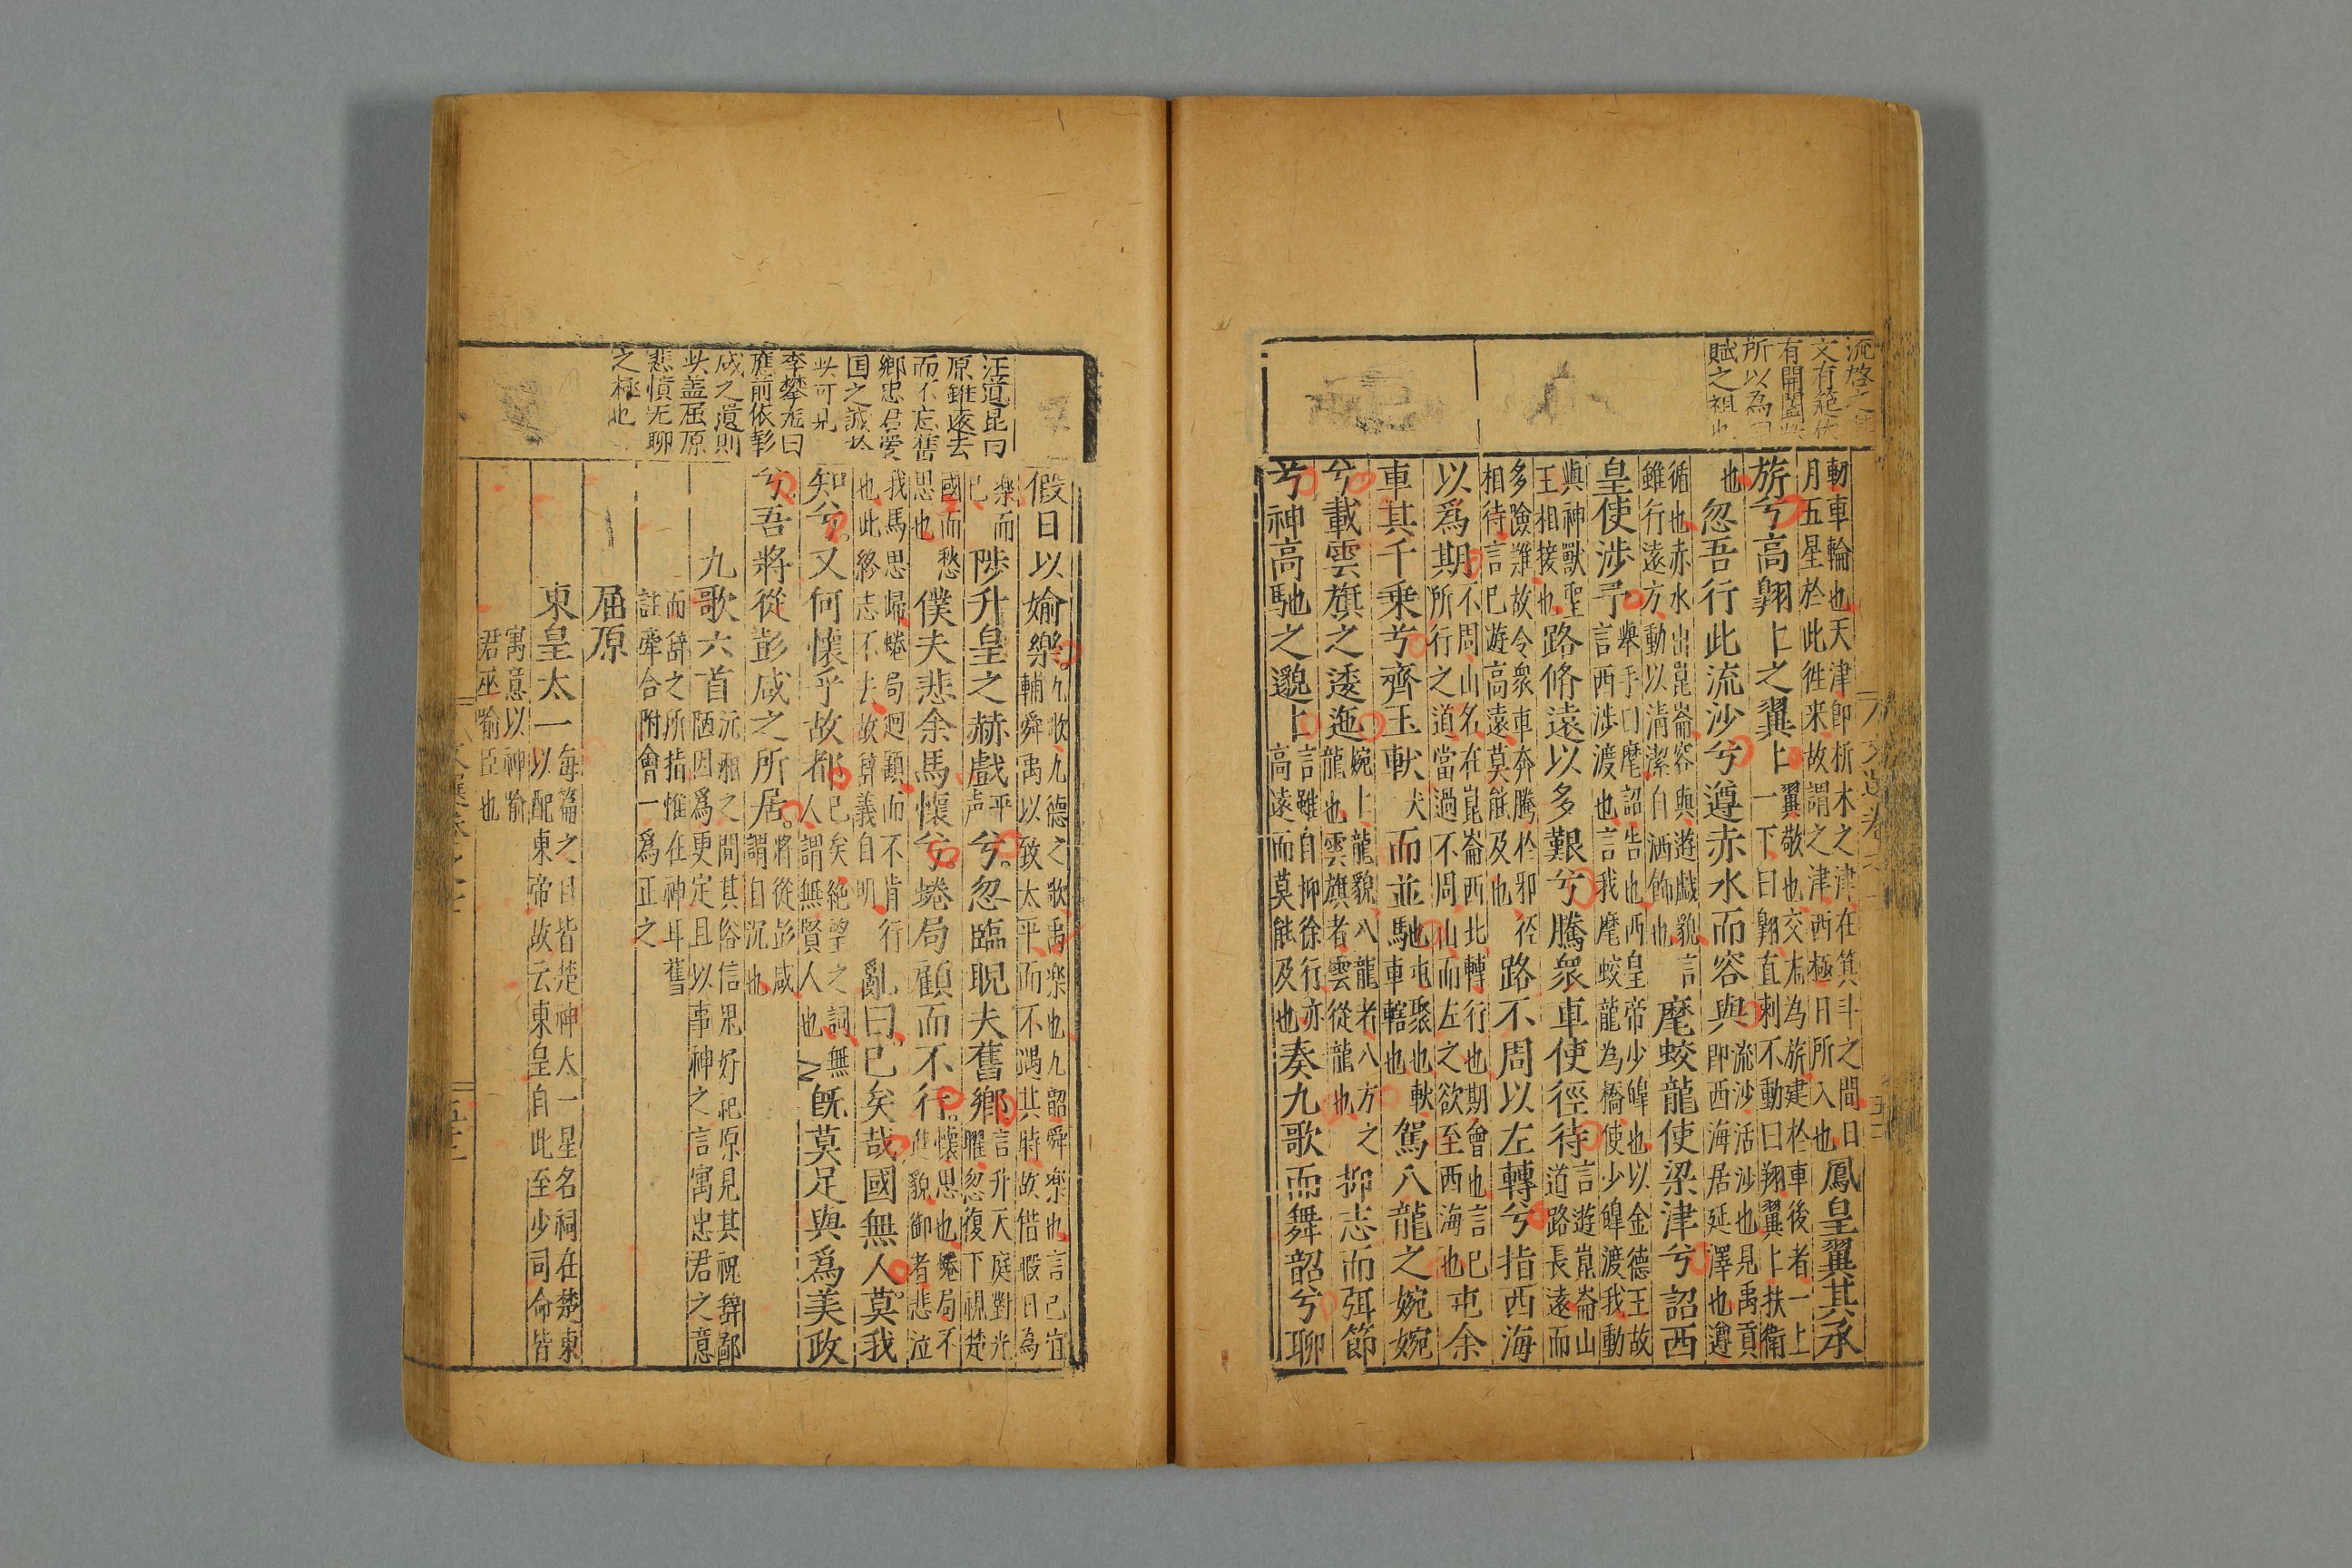 流啓之
文有範
有開闔
所以為
賦之祖也
軔車輪也天津即析木之津在箕斗之間日
月五星於此徃来故謂之津西極日所入也
鳳皇翼其承
旂兮高翺上之翼上
翼敬也交龙為旂建於車後者一上
一下曰翺直刺不動曰翔翼上扶衛
也
忽吾行此流沙兮遵赤水而容與
流沙活沙也見禹貢
即西海居延澤也遵
循也赤水出崑崙容與遊戲貌言
雖行遠方動以清潔自洒飾也
麾蛟龍使梁津兮詔西
皇使涉予
舉手曰麾詔告也西皇帝少皥也以金德王故
言西涉渡也言我麾蛟龍為橋使少皥渡我動
與神獸聖
王相接也
路脩遠以多艱兮騰衆車使徑待
言遊崑崙山
道路長遠而
多險難故令衆車奔騰於邪径
相待言已遊高遠莫能及也
路不周以左轉兮指西海
以爲期
不周山名在崑崙西北轉行也期會也言已
所行之道當過不周山而左之欲至西海也
屯余
車其千乗兮齊玉軑
犬
而並馳
屯聚也軑
車轄也
駕八龍之婉婉
兮載雲旗之逶迤
婉上龍貌八龍者八方之
龍也雲旗者雲從龍也
抑志而弭節
兮神高馳之邈上
言雖自抑徐行亦
高遠而莫能及也
奏九歌而舞韶兮聊
汪道昆曰
原雖遠去
而不忘舊
鄉忠君愛
国之誠於
此可見
李攀龙曰
應前依彭
咸之遺則
此盖屈原
悲憤无聊
之極也
假日以媮樂
九歌九德之歌禹楽也九韶舜楽也言己宜
輔舜禹以致太平而不遇其時故借暇日為
楽而
已
陟升皇之赫戲
平
声
兮忽臨睨夫舊鄉
言升天庭對光
曜忽復下視楚
國而愁
思也
僕夫悲余馬懷兮蜷局顧而不行
懷思也蜷局不
進貌御者悲泣
我馬思歸蜷局迴顧而不肯行
也此終志不去故辞義自明
亂曰已矣哉國無人莫我
知兮又何懷乎故都
已矣絶望之詞無
人謂無賢人也
既莫足與爲美政
兮吾將從彭咸之所居
將從彭咸
謂自沉也
九歌六首
沅湘之間其俗信鬼好祀原見其祝辞鄙
陋因爲更定且以事神之言寓忠君之意
而辞之所指惟在神耳舊
註牽合附會一爲正之
屈原
東皇太一
每篇之目皆楚神太一星名祠在楚東
以配東帝故云東皇自此至少司命皆
寓意以神喻
君巫喻臣也